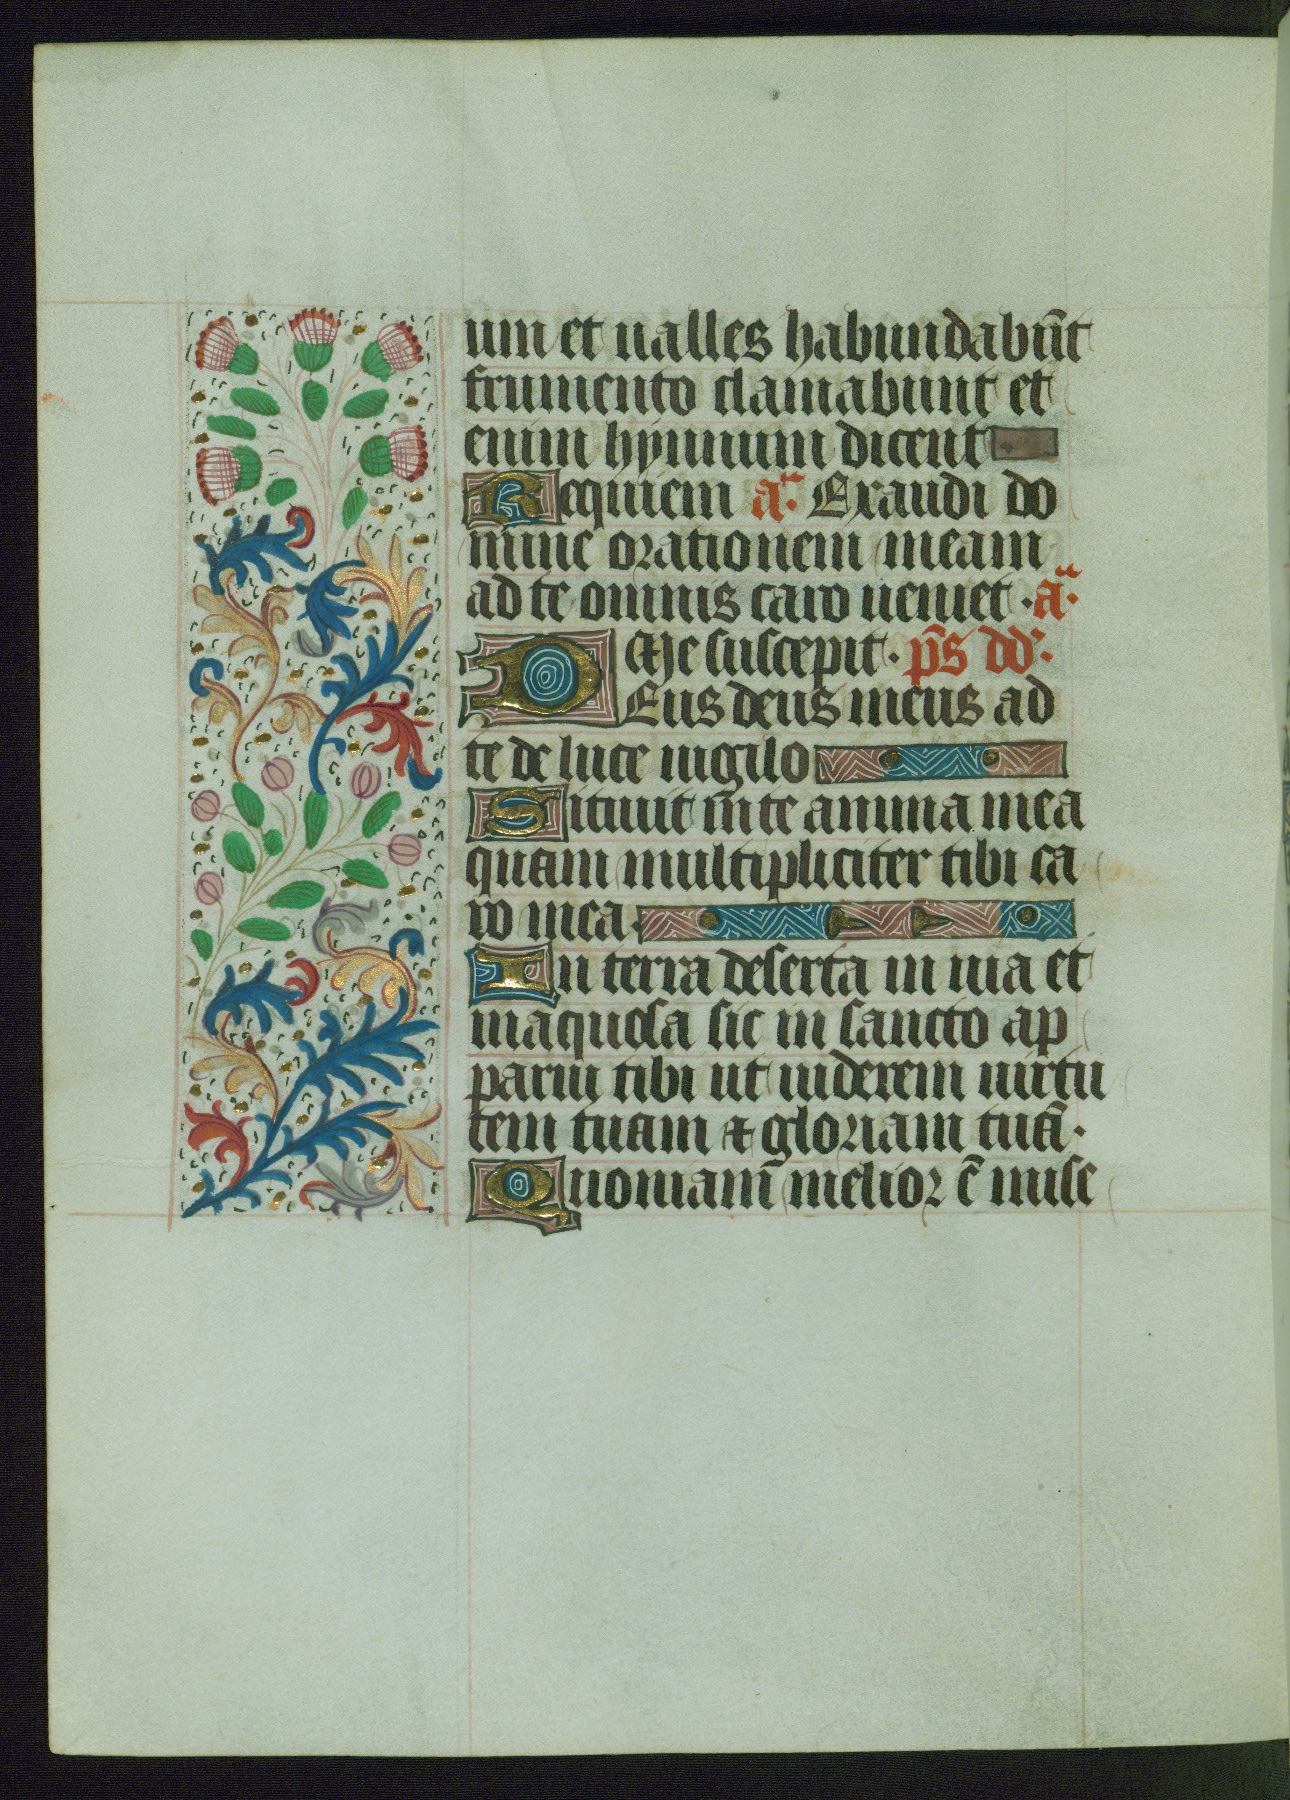 um et ualles habundabūt
frumento clamabunt et
enim hymnum dicent
Requiem a᷑. Exaudi do
mine orationem meam
ad te omnis caro ueniet · a᷑.
Me suscepit · p̄s dd̄.
DEus deus meus ad
te de luce uigilo
Sitiuit in te anima mea
quam multipliciter tibi ca
ro mea.
In terra deserta in uia et
inaquosa sic in sancto ap
parui tibi ut uiderem uirtu
tem tuam ⁊ gloriam tuā.
Quoniam̄ melior ē mise